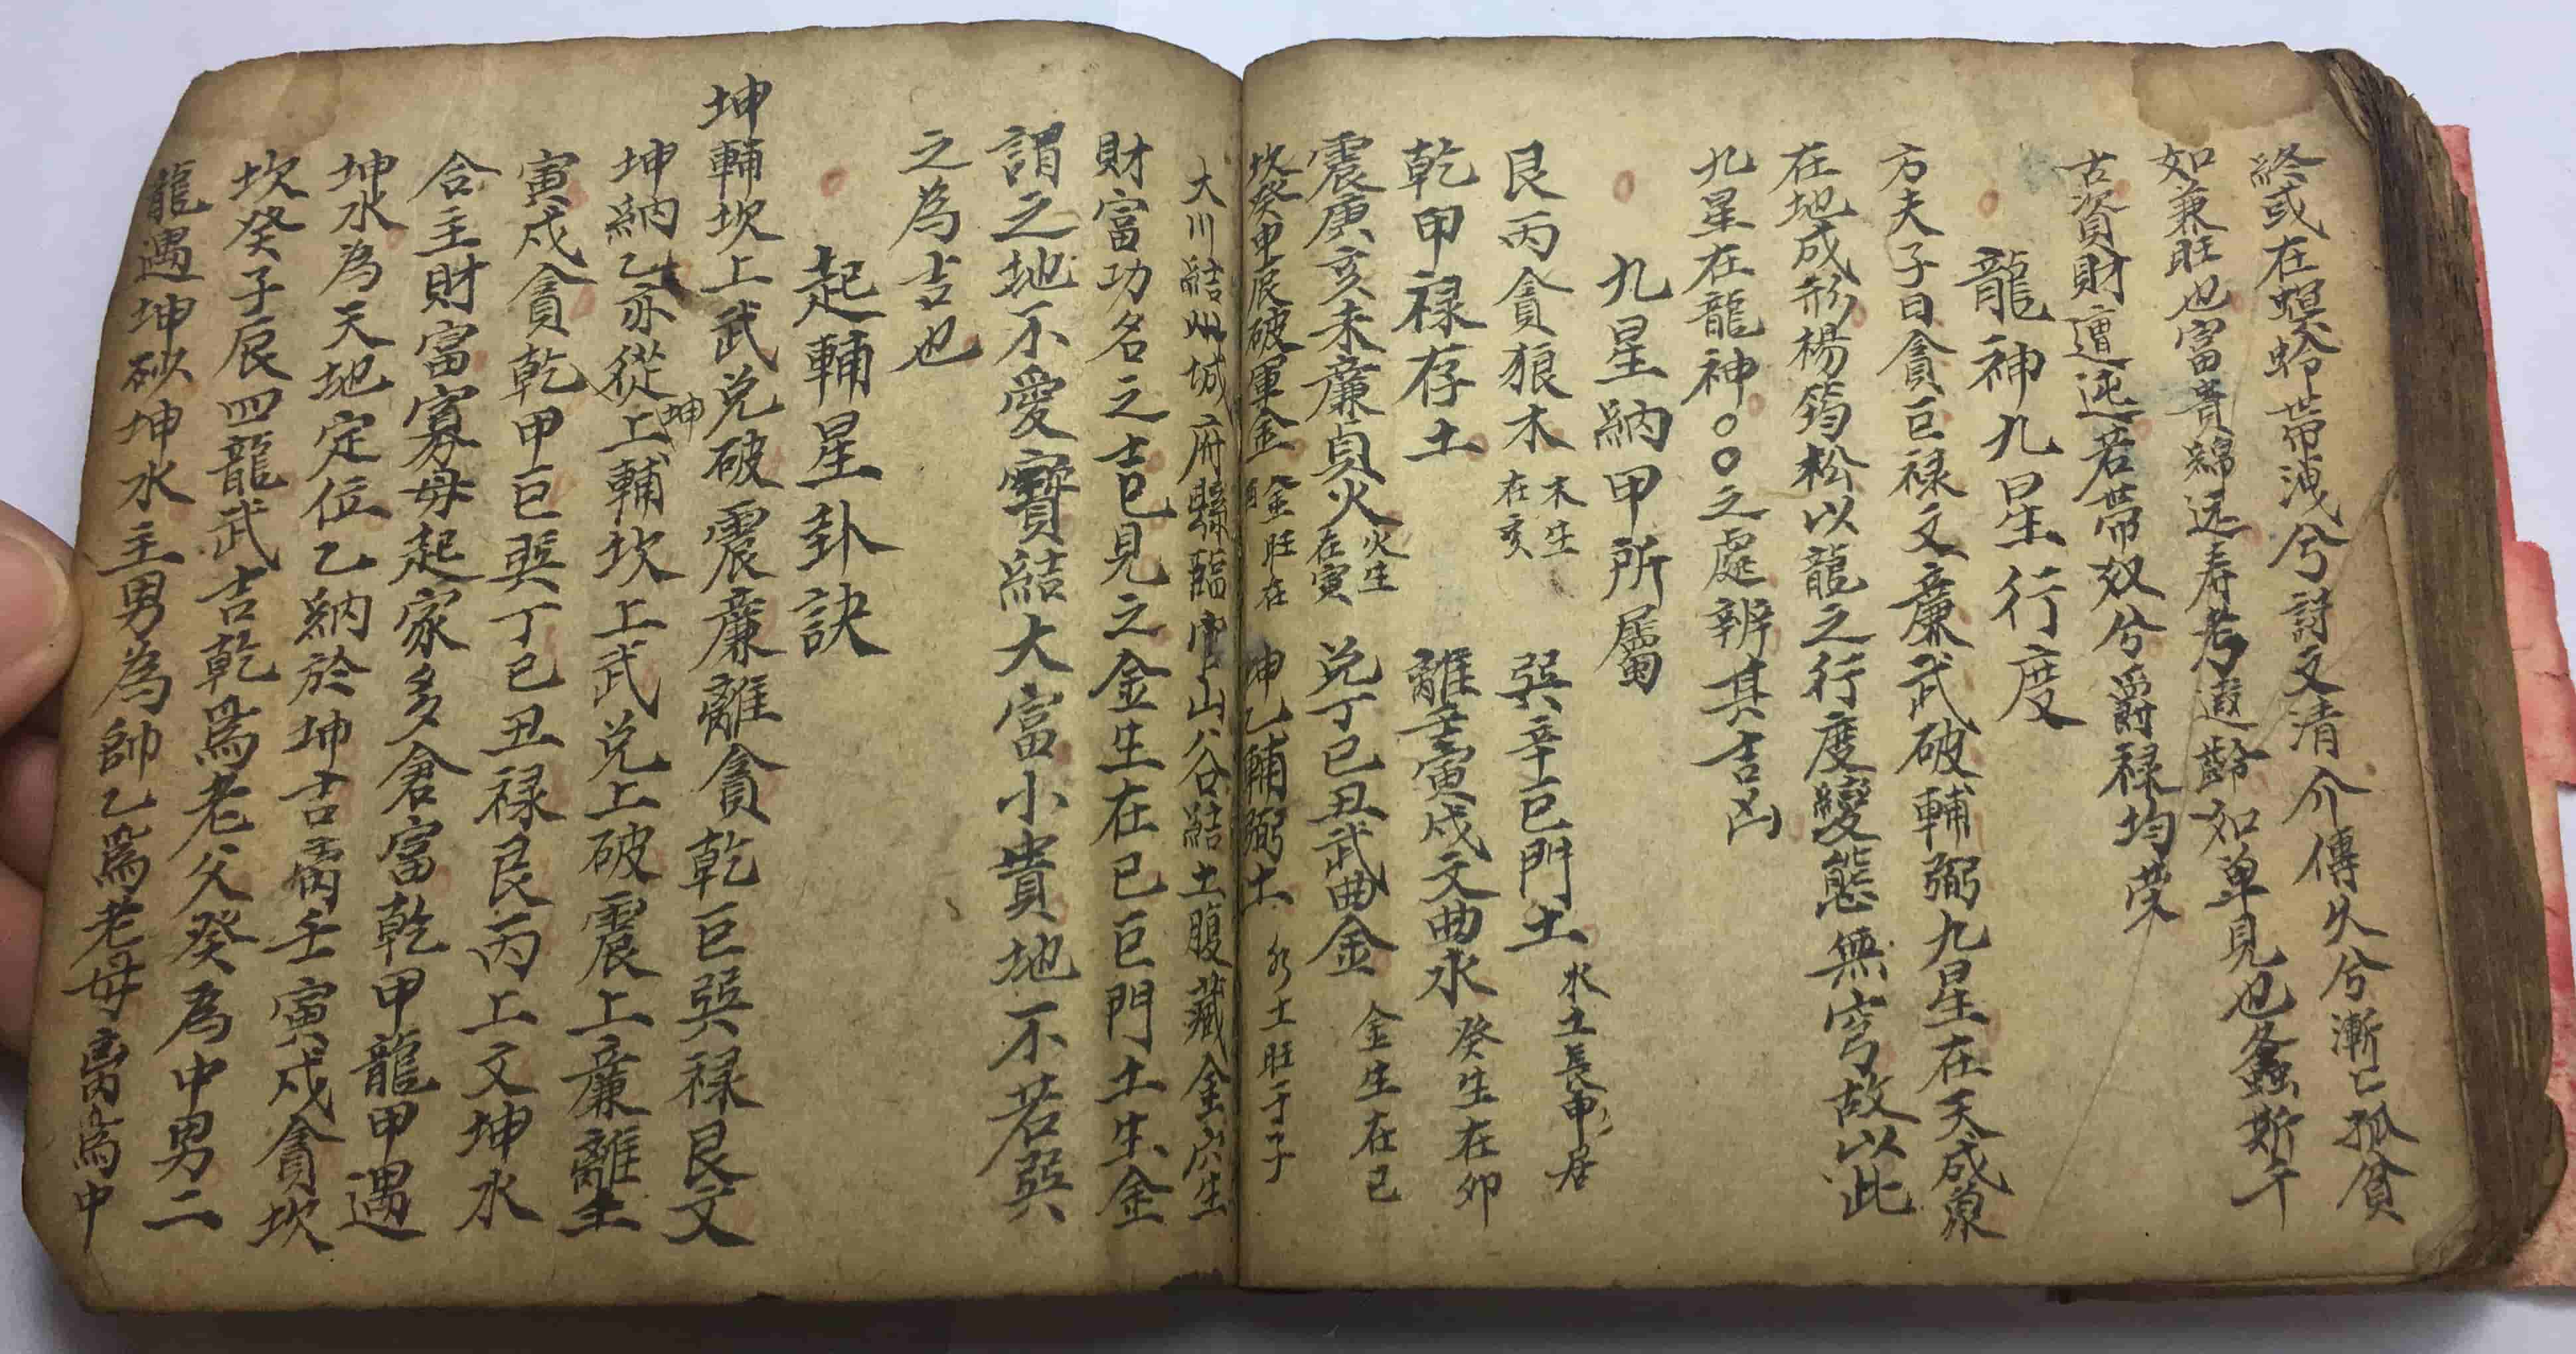 終或在螟蛉帶洩兮詩文清介傳久兮漸亡孤貧
如兼旺也富貴綿远寿考遐齡如单見也螽斯千
古資財遭迍若帶奴兮爵禄均荣
龍神九星行度
方夫子曰貪巨禄文亷武破輔弼九星在天成象
在地成形楊筠松以龍之行度變態無穷故以此
九星在龍神〇〇之處辨其吉凶
九星納甲所属
艮丙貪狼木 木生在亥 巽辛巨門土 水土長申居
乾甲禄存土 離壬寅戌文曲水 癸生在卯
震庚亥未亷貞火 火生在寅 兑丁巳丑武曲金 金生在巳
坎癸申辰破軍金 金旺在酉 坤乙輔弼土 水土旺于子
大川結州城府縣臨官山谷結土腹藏金穴生
財富功名之士巳見之金生在巳巨門土生金
謂之地不愛寶結大富小貴地不若巽
之為吉也
起輔星卦訣
坤輔坎上武兑破震亷離貪乾巨巽禄艮文
坤納乙亦從坤上輔坎上武兑上破震上亷離壬
寅戌貪乾甲巨巽丁巳丑禄艮丙上文坤水
合主財富寡母起家多倉富乾甲龍甲遇
坤水為天地定位乙納於坤吉离壬寅戌貪坎
坎癸子辰四龍武吉乾爲老父癸為中男二
龍遇坤砂坤水主男為帥乙爲老母离爲中